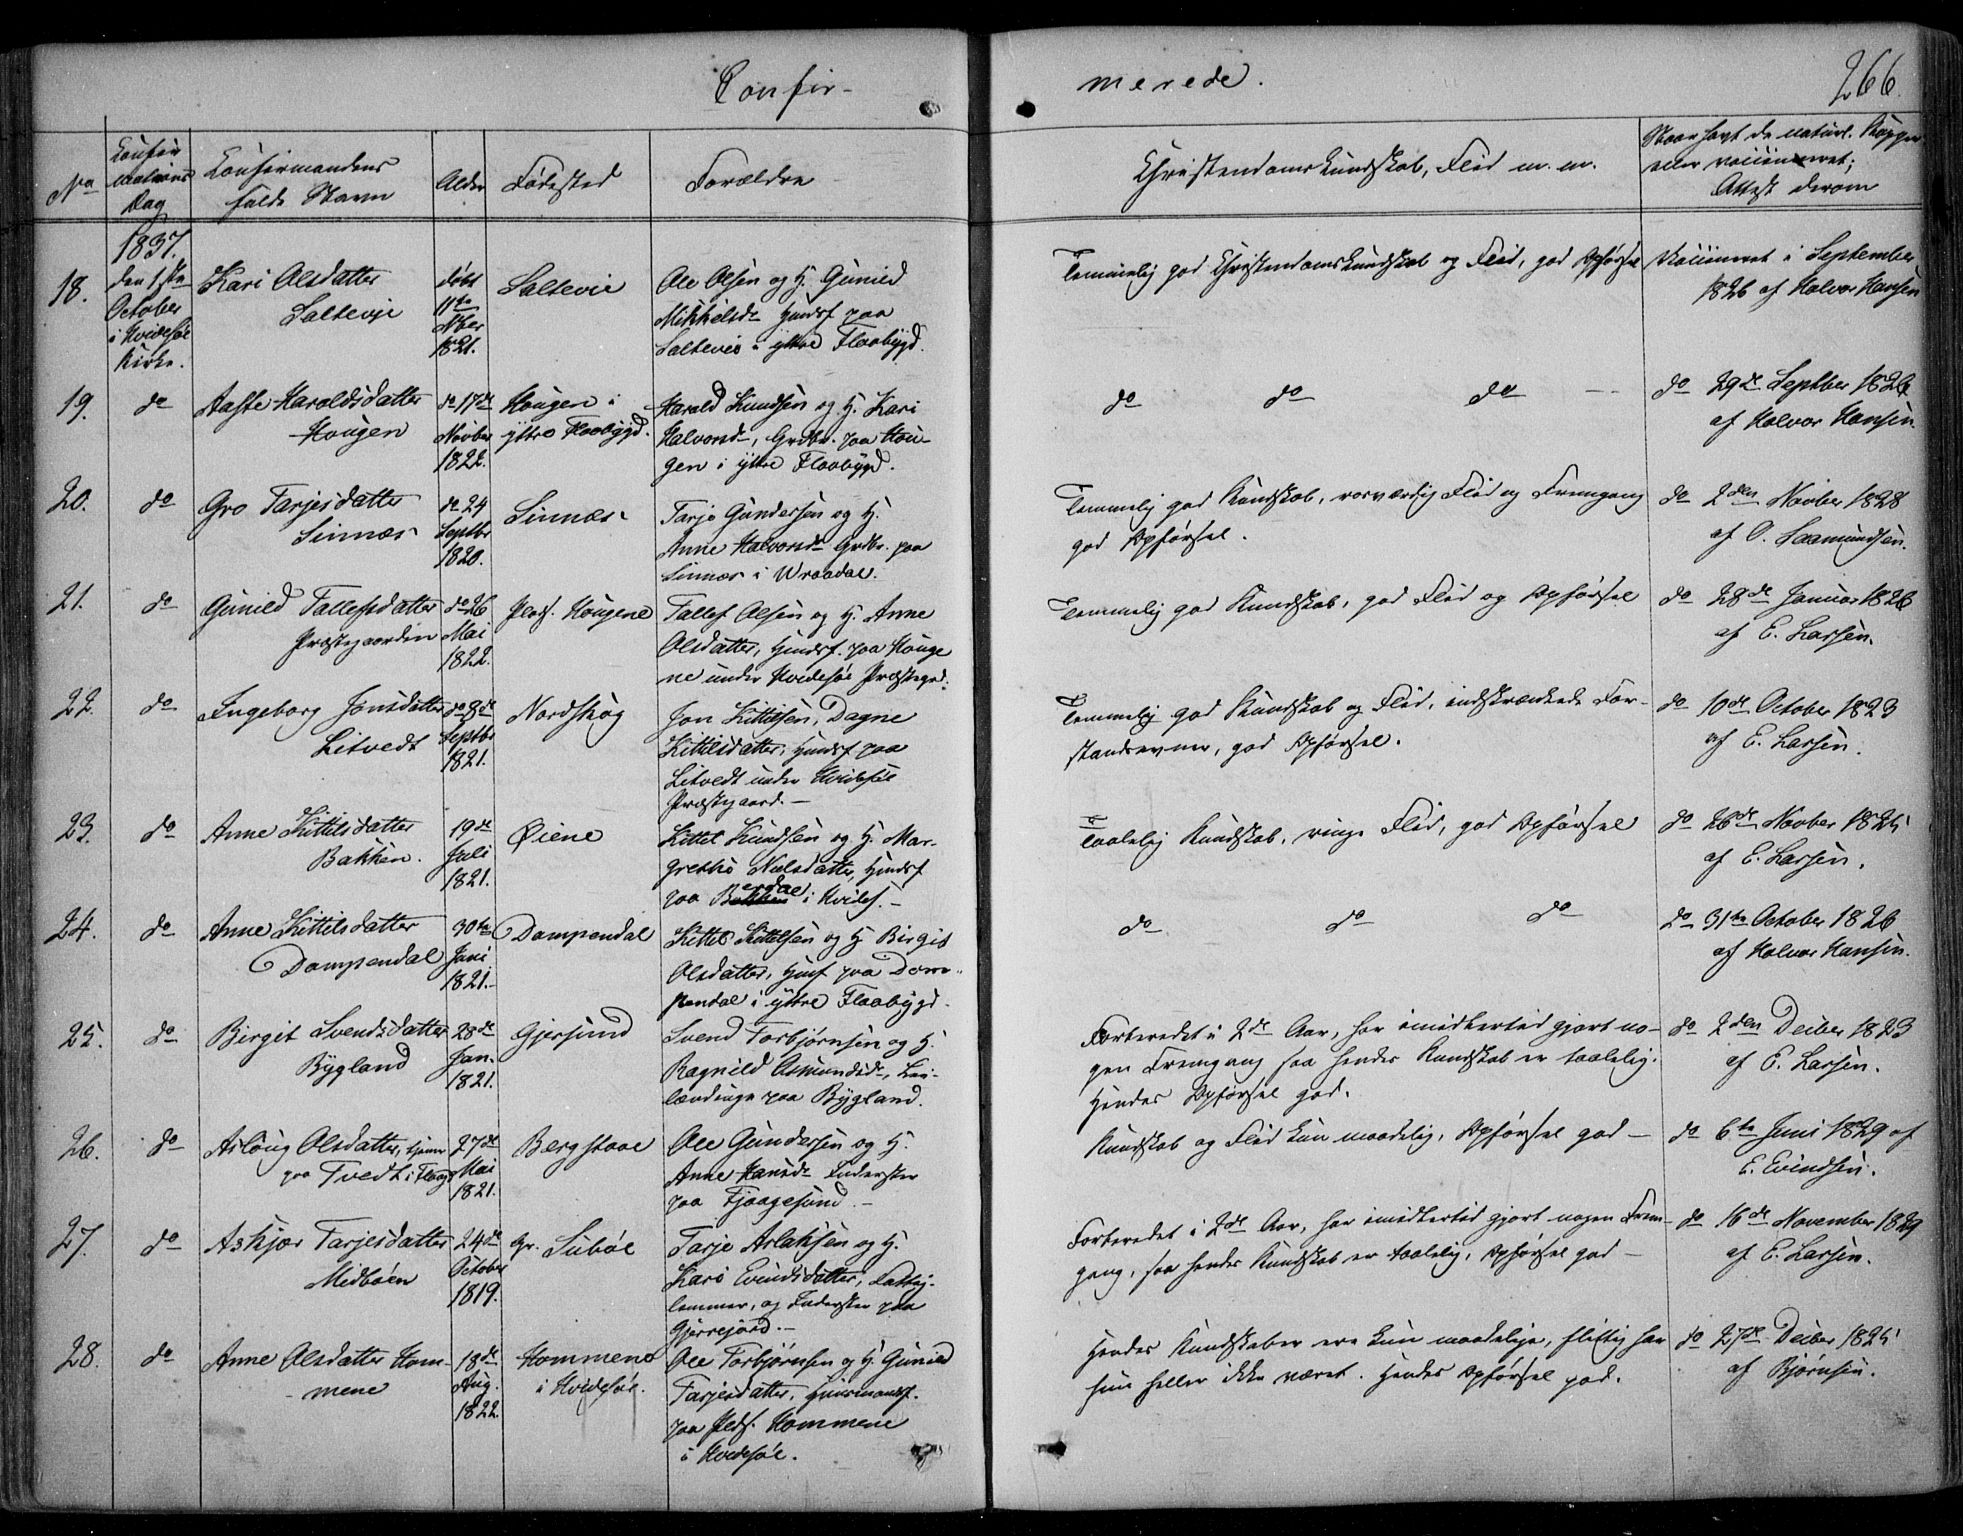 Confir-
merede.
266.
No
Confir
mations
Dag
Confirmandens
fulde Navn
Alder
Fødested
Forældre
Christendomskundskab, Flid m. m.
Naar havt de naturl. Kopper
eller vaccineret;
Attest derom
1837.
18.
den 1ste
October
i Hvidesøe
Kirke.
Kari Olsdatter
Saltevje
døbt
11te
Nber
1821.
Saltevie
Ole Olsen og H. Gunild
Mikkelsdr Husmf paa
Saltevie i yttre Flaabygd.
Temmelig god Christendomskundskab og Flid, god Opførsel
Vaccineret i September
1826 af Halvor Hansen
19.
do
Aaste Haroldsdatter
Hougen
do 17de
Novber
1822.
Hougen i
yttre Flaabygd.
Harold Knudsen og H. Kari
Halvorsdr, Grdbr. paa Hou-
gen i yttre Flaabygd.
do do do
do 29de Septber 1826
af Halvor Hansen.
20.
do
Gro Tarjesdatter
Sinnæs
do 24
Septbr
1820.
Sinnæs
Tarje Gundersen og H.
Anne Halvorsdr Grdbr. paa
Sinnæs i Wraadal.
Temmelig god Kundskab, rosværdig Flid og Fremgang
god Opførsel.
do 2den Novber 1828
af O. Saamundsen.
21.
do
Gunild Tallefsdatter
Præstegaarden
do 26
Mai
1822.
Plads. Hougene
Tallef Olsen og H. Anne
Olsdatter, Husmf. paa Houge
ne under Hvidesøe Præstegrd.
Temmelig god Kundskab, god Flid og Opførsel
do 28de Januar 1826
af E. Larsen.
22.
do
Ingeborg Jonsdatter
Litvedt
do 8de
Septbr
1821.
Nordskog
Jon Kittilsen, Dagne
Kittilsdatter, Husmf paa
Litvedt under Hvidesøe
Præstegaard.
Temmelig god Kundskab og Flid, indskrænkede For-
standsevner, god Opførsel.
do 10de October 1823
af E. Larsen.
23.
do
Anne Kittilsdatter
Bakken.
19de
Juli
1821.
Øiene
Kittel Knudsen og H. Mar-
grethe Nielsdatter, Husmf
paa Berdal i Hvides.
Taalelig Kundskab, ringe Flid, god Opførsel
do 26de Novber 1825
af E. Larsen.
24.
do
Anne Kittilsdatter
Dampendal
30te
Juni
1821.
Dampendal
Kittel Kittelsen og H Birgit
Olsdatter, Husf paa Dam-
pendal i yttre Flaabygd.
do do do
do 31te October 1826
af Halvor Hansen.
25.
do
Birgit Svendsdatter
Bygland
28de
Jan.
1821.
Gjersund
Svend Torbjørnsen og H.
Ragnild Asmundsdr, Lei-
lændinge paa Bygland.
Forberedet i 2de Aar, har imidlertid gjort no-
gen Fremgang saa hendes Kundskab er taalelig.
Hendes Opførsel god.
do 2den Deiber 1823
af E. Larsen.
26.
do
Aslaug Olsdatter, tjener
paa Tvedt i Flaa
27de
Mai
1821.
Bergstaae
Ole Gundersen og H.
Anne Hansdr Inderster
paa Fjaagesund.
Kundskab og Flid kun maadelig, Opførsel god
do 6te Juni 1829 af
E. Evindsen.
27.
do
Askjær Tarjesdatter
Midbøen
24de
October
1819.
Gr. Subøe
Tarje Aslaksen og H.
Kari Evindsdatter, Fattig-
lemmer, og Inderster paa
Gjerrejord.
Forberedet i 2de Aar, har imidlertid gjort nogen Frem-
gang, saa hendes Kundskab er taalelig, Opførsel god
do 16de November 1829
af E. Larsen.
28.
do
Anne Olsdatter Hom-
mene
18de
Aug.
1822.
Hommene
i Hvidesøe.
Ole Torbjørnsen og H Gunild
Tarjesdatter, Husmandsf.
paa Plds. Hommene
i Hvidesøe.
Hendes Kundskaber ere kun maadelige, flittig har
hun heller ikke været. Hendes Opførsel god.
do 27de Deiber 1825
af Bjørnsen.